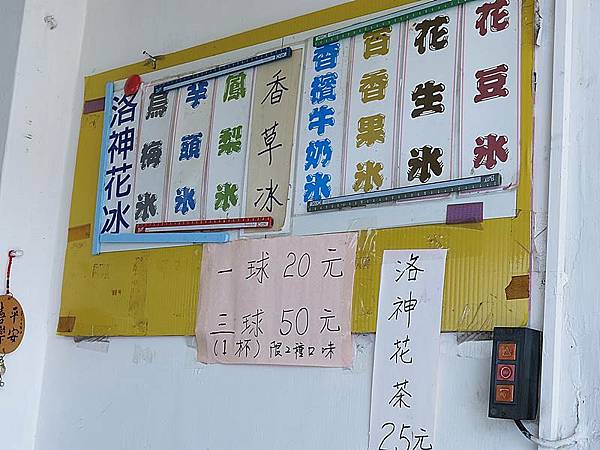 花豆冰
花生冰
百香果冰
香檳牛奶冰
香草冰
鳳梨冰
芋頭冰
烏梅冰
洛神花冰
一球20元
三球50元
(1杯)限2種口味
洛神花茶
25元
平安